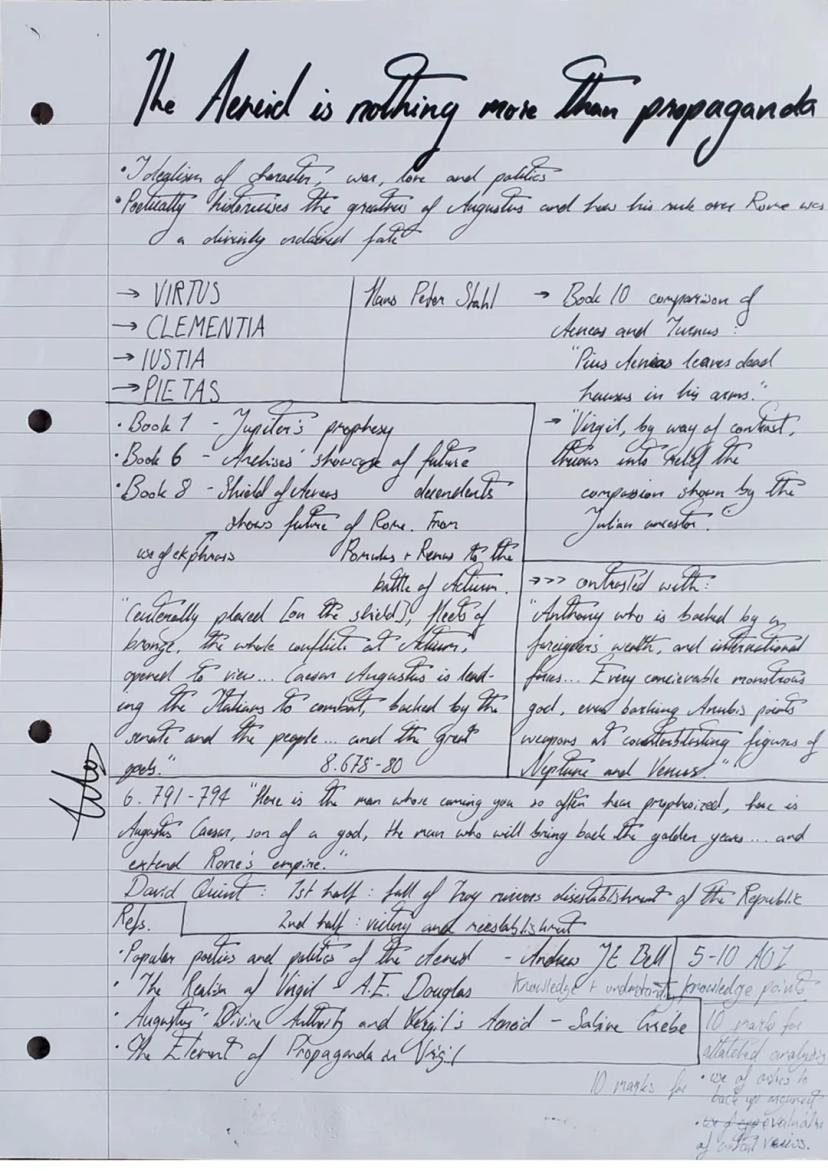 The Aeneid is nothing more than propaganda
• Idealism of character, war, love and politics
• Poetically historicises the greatness of Augustus and how his rule over Rome was
a divinely ordained fate
→ VIRTUS
→ CLEMENTIA
→ IUSTIA
→ PIETAS
Hans Peter Stahl
→ Book 10 comparison of
Aeneas and Turnus :
"Pius Aeneas leaves dead
in his arms."
→ "Virgil, by way of contrast,
throws into relief the
compassion shown by the
Julian ancestor."
• Book 1 - Jupiter's prophesy
• Book 6 - Anchises' showcase of future
decendents
• Book 8 - Shield of Aeneas
shows future of Rome. From
Romulus + Remus to the
battle of Actium.
use of ekphrasis
"Centerally placed [on the shield], fleets of
bronze, the whole conflict at Actium,
opened to view... Caesar Augustus is lead-
ing the Italians to combat, backed by the
senate and the people... and the great
gods." 8.678-80
→>> contrasted with:
"Anthony who is backed by a
foreigner's wealth, and international
... Every concievable monstrous
god, even barking Anubis points
weapons at figures of
Neptune and Venus."
6. 791-794 "Here is the man whose coming you so often hear prophesized, here is
Augustus Caesar, son of a god, the man who will bring back the golden years... and
extend Rome's empire."
David Quint : 1st half : fall of Troy mirrors disestablishment of the Republic
2nd half : victory and reestablishment
Refs.
• Popular poetics and politics of the Aeneid - Andrew JE Bell
• The Realism of Virgil - A.E. Douglas
• Augustus' Divine Authority and Vergil's Aeneid - Sabine Grebe
• The Element of Propaganda in Virgil
5-10 AO1
knowledge points
Knowledge + understanding
10 marks for
10 marks for
• use of to
back up argument
•
of